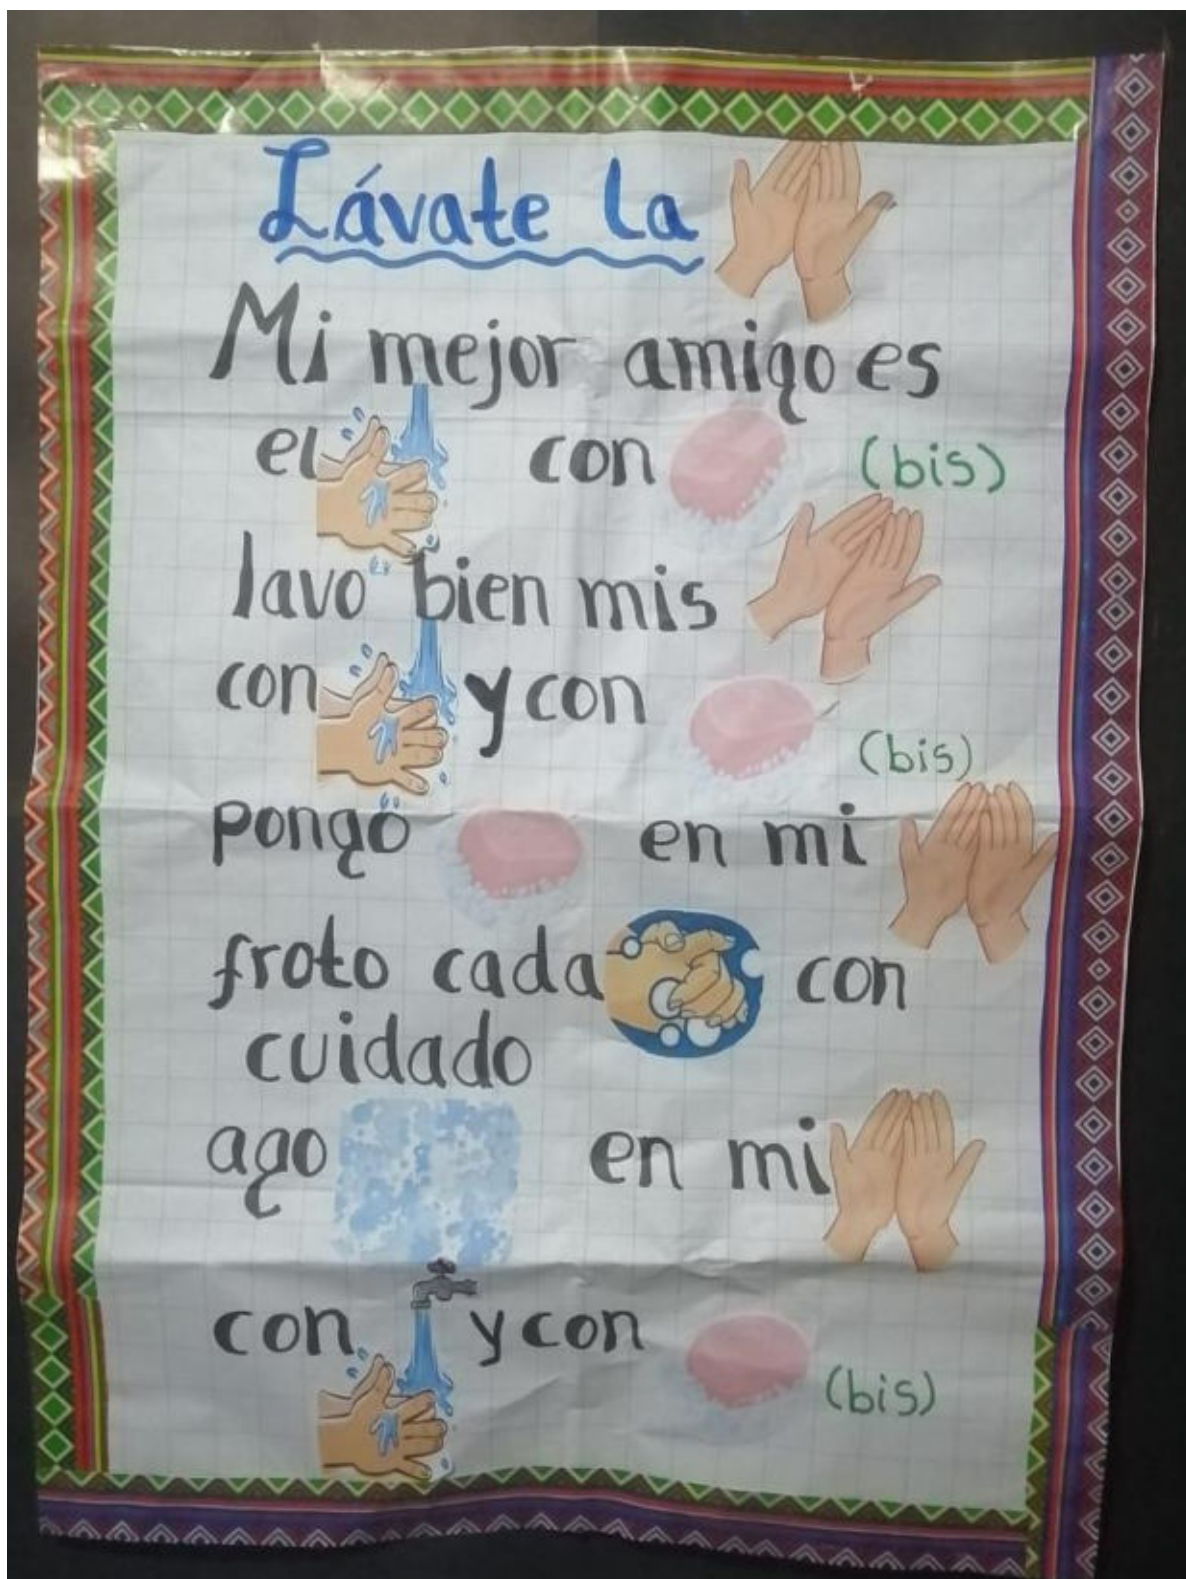 Lávate la
Mi mejor amigo es
el con (bis)
lavo bien mis
con y con
(bis)
pongo en mi
froto cada con
cuidado
ago en mi
con y con
(bis)